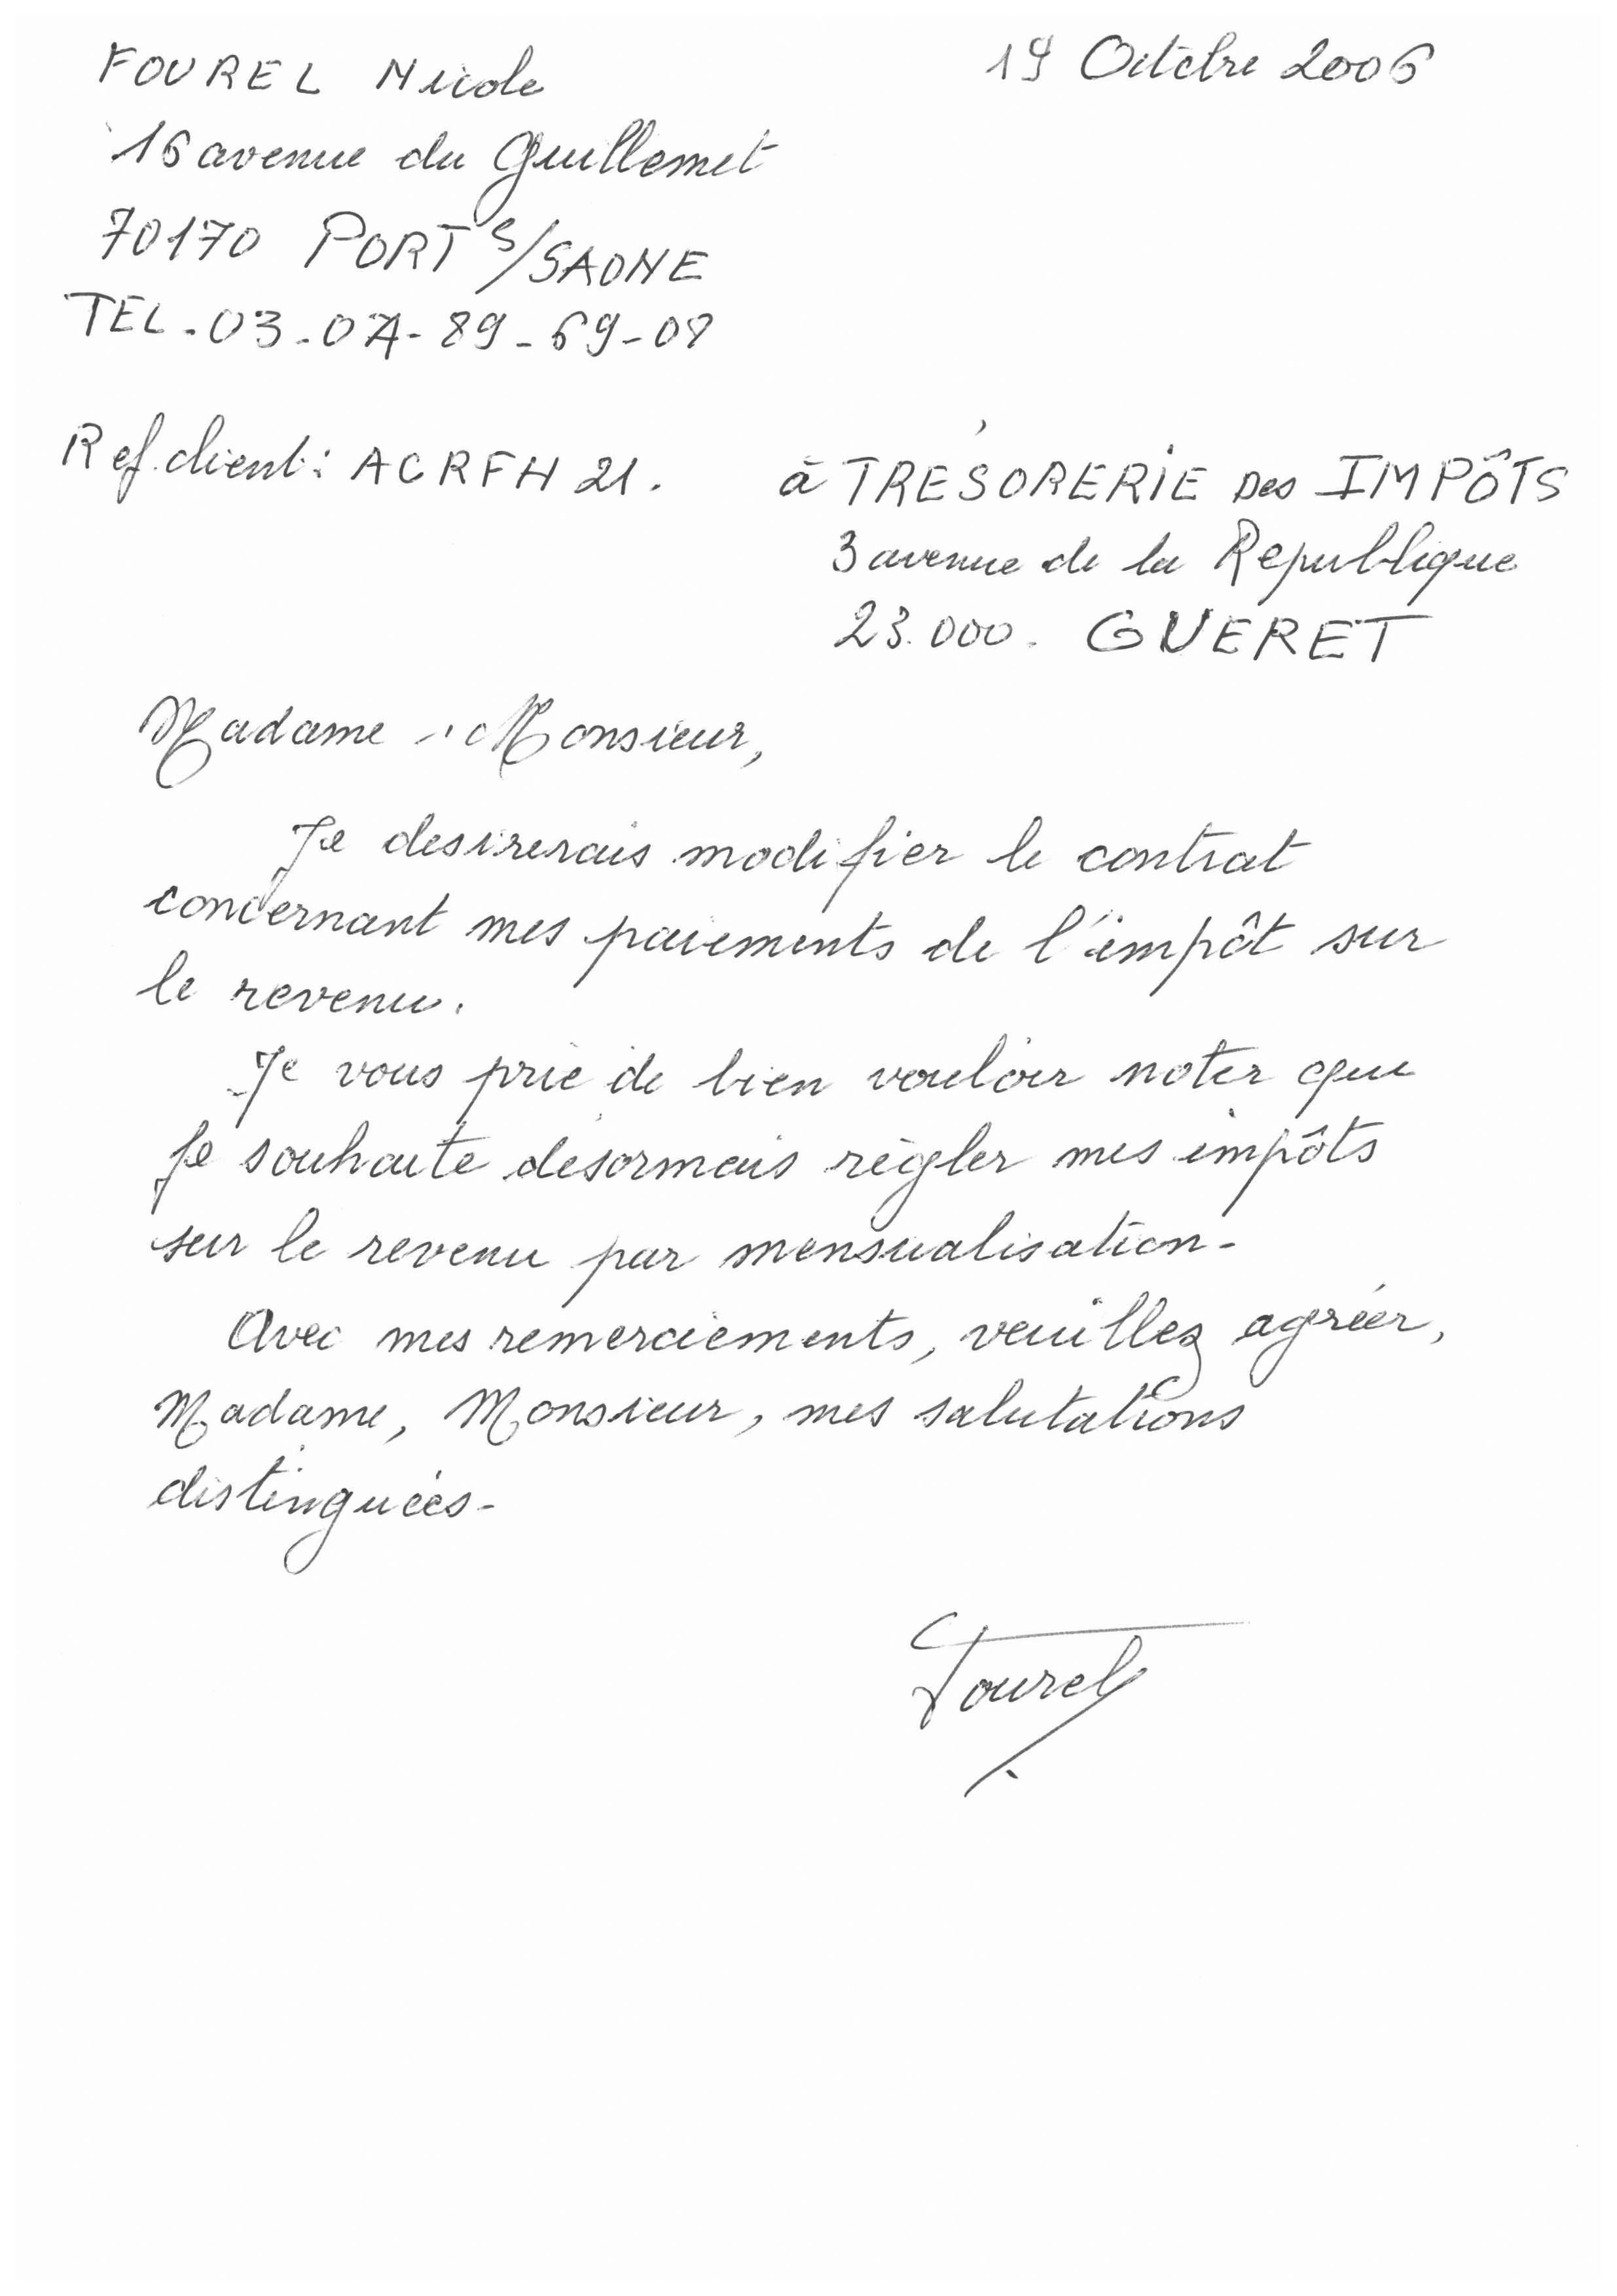 FOUREL Nicole
19 Octobre 2006
16 avenue du Guillemet
70170 PORT S/SAONE
TEL. 03.07.89.69.08
Ref. client : ACRFH 21.
à TRÉSORERIE Des IMPÔTS
3 avenue de la Republique
23.000. GUERET
Madame, Monsieur,
Je desirerais modifier le contrat
concernant mes paiements de l'impôt sur
le revenu.
Je vous prie de bien vouloir noter que
je souhaite désormais régler mes impôts
sur le revenu par mensualisation.
Avec mes remerciements, veuillez agréer,
Madame, Monsieur, mes salutations
distinguées.
Fourel